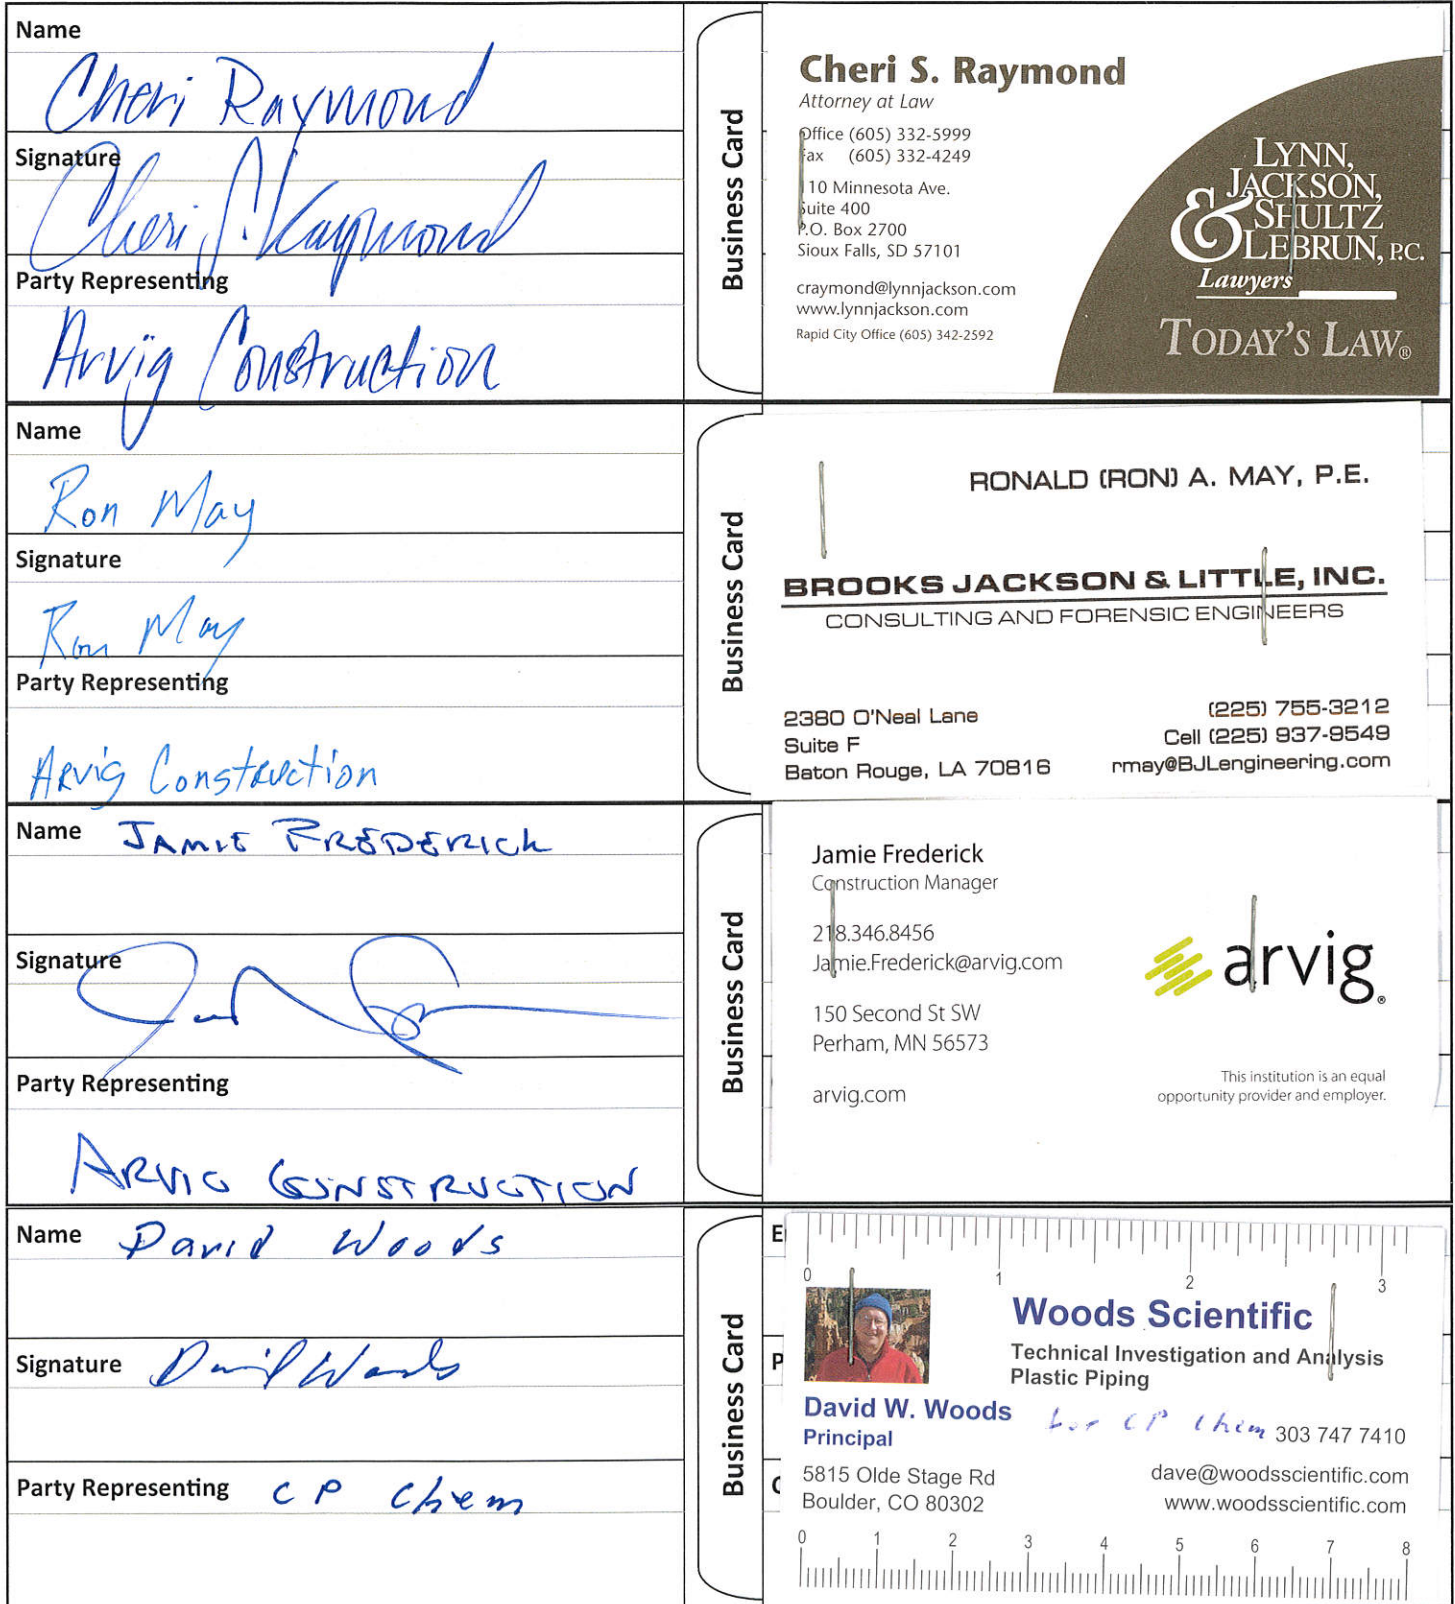 Name
Cheri Raymond
Signature
Cheri S. Raymond
Party Representing
Arvig Construction
Business Card
Cheri S. Raymond
Attorney at Law
Office (605) 332-5999
Fax (605) 332-4249
110 Minnesota Ave.
Suite 400
P.O. Box 2700
Sioux Falls, SD 57101
craymond@lynnjackson.com
www.lynnjackson.com
Rapid City Office (605) 342-2592
LYNN,
JACKSON,
SHULTZ
& LEBRUN, P.C.
Lawyers
TODAY'S LAW®
Name
Ron May
Signature
Ron May
Party Representing
Arvig Construction
Business Card
RONALD (RON) A. MAY, P.E.
BROOKS JACKSON & LITTLE, INC.
CONSULTING AND FORENSIC ENGINEERS
2380 O'Neal Lane
Suite F
Baton Rouge, LA 70816
(225) 755-3212
Cell (225) 937-9549
rmay@BJLengineering.com
Name JAMIE FREDERICK
Signature
Party Representing
ARVIG CONSTRUCTION
Business Card
Jamie Frederick
Construction Manager
218.346.8456
Jamie.Frederick@arvig.com
150 Second St SW
Perham, MN 56573
arvig.com
arvig®
This institution is an equal
opportunity provider and employer.
Name David Woods
Signature David Woods
Party Representing CP Chem
Business Card
E
P
0 1 2 3
Woods Scientific
Technical Investigation and Analysis
Plastic Piping
David W. Woods
Principal
for CP Chem 303 747 7410
5815 Olde Stage Rd
Boulder, CO 80302
dave@woodsscientific.com
www.woodsscientific.com
0 1 2 3 4 5 6 7 8